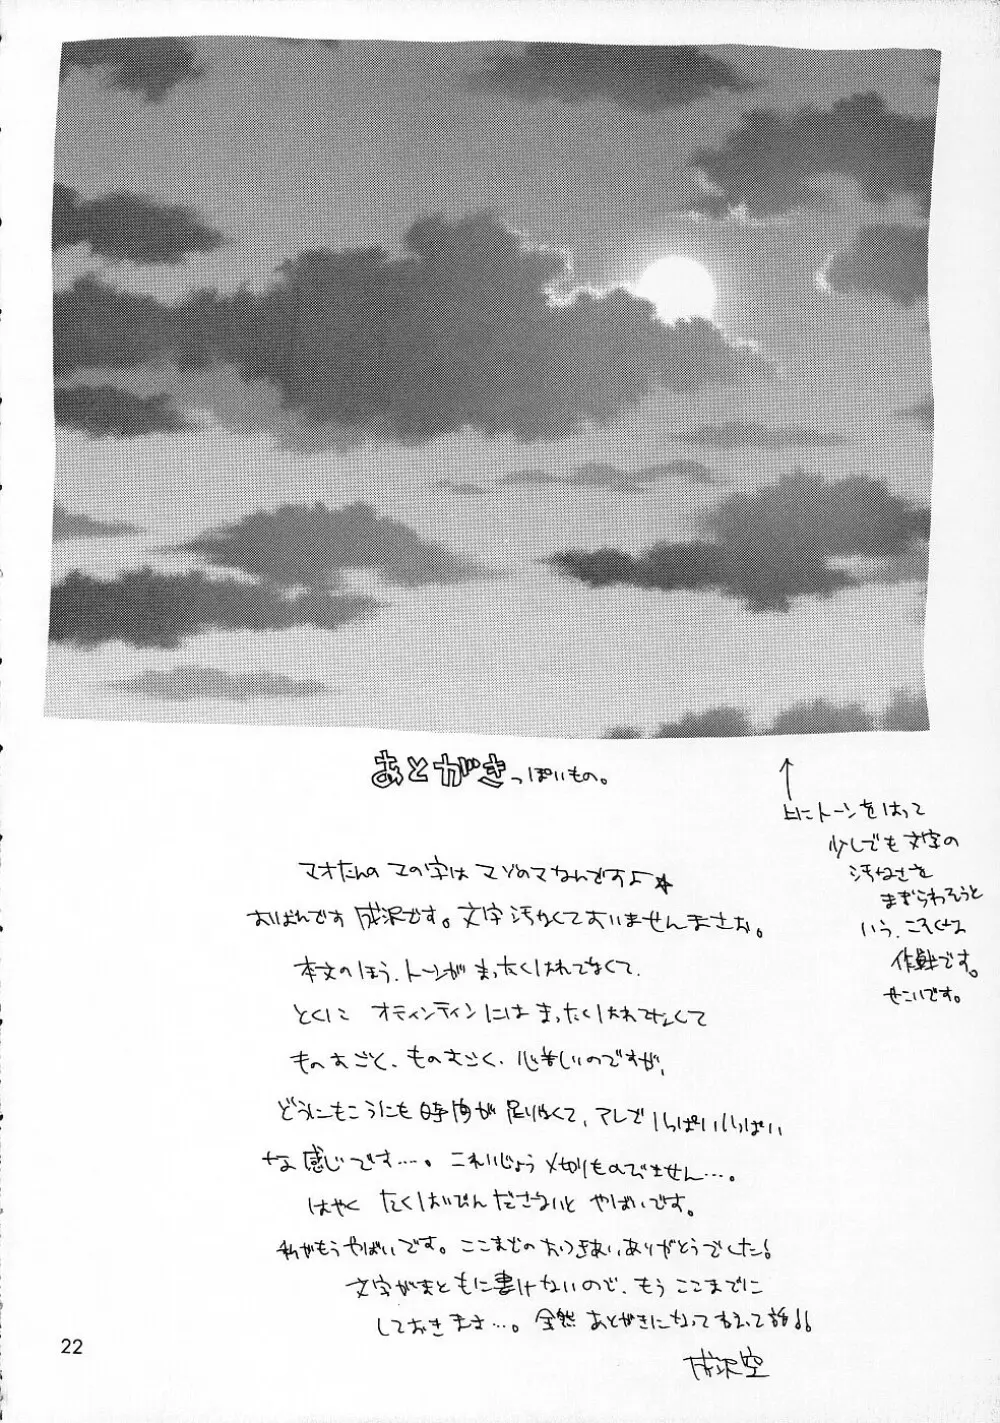 あとがきっぽいもの。
↑
上にトーンをはって
少しでも文字の
汚なさを
まぎらわそうと
いう、こそくな
作戦です。
せこいです。
マオたんの マの字は マゾのマなんですよ☆
おばんです 成沢です。文字汚なくておいませんまさお。
本文のほう、トーンが まったくはれてなくて、
とくに オティンティンにはまったくはれてなくて
ものすごと、ものすごく、心苦しいのですが、
どうにもこうにも時間が足りなくて、アレでいっぱいいっぱい
な感じです…。これいじょう〆切りものびません…。
はやく たくはいびんださないと やばいです。
私がもうやばいです。ここまでのおつきあい、ありがとうでした!
文字がまともに書けないので、もう ここまでに
しておきます…。全然 あとがきになってねえって話!!
成沢空
22